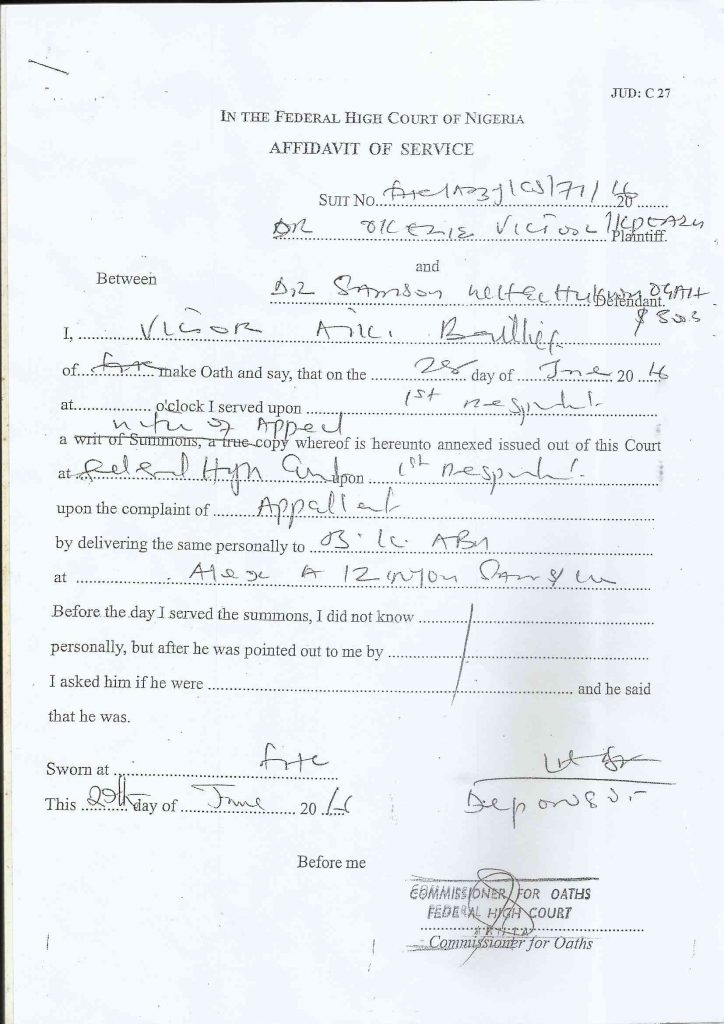 JUD: C 27
IN THE FEDERAL HIGH COURT OF NIGERIA
AFFIDAVIT OF SERVICE
SUIT No. FHC/ABJ/CS/71/ 2016
DR OKEZIE VICTOR IKPEAZU Plaintiff.
Between
and
DR SAMSON OGAH Defendant.
& 3ors
I, VICTOR Bailiff
of FHC make Oath and say, that on the 28 day of June 2016
at o'clock I served upon 1st Respndt.
Notice of Appeal
a writ of Summons, a true copy whereof is hereunto annexed issued out of this Court
at Federal High Court upon 1st Respndt.
upon the complaint of Appellant
by delivering the same personally to
at Alex A Izinyon SAN &
Before the day I served the summons, I did not know
personally, but after he was pointed out to me by
I asked him if he were and he said
that he was.
Sworn at FHC
This 29th day of June 2016
Deponent
Before me
COMMISSIONER FOR OATHS
FEDERAL HIGH COURT
Commissioner for Oaths